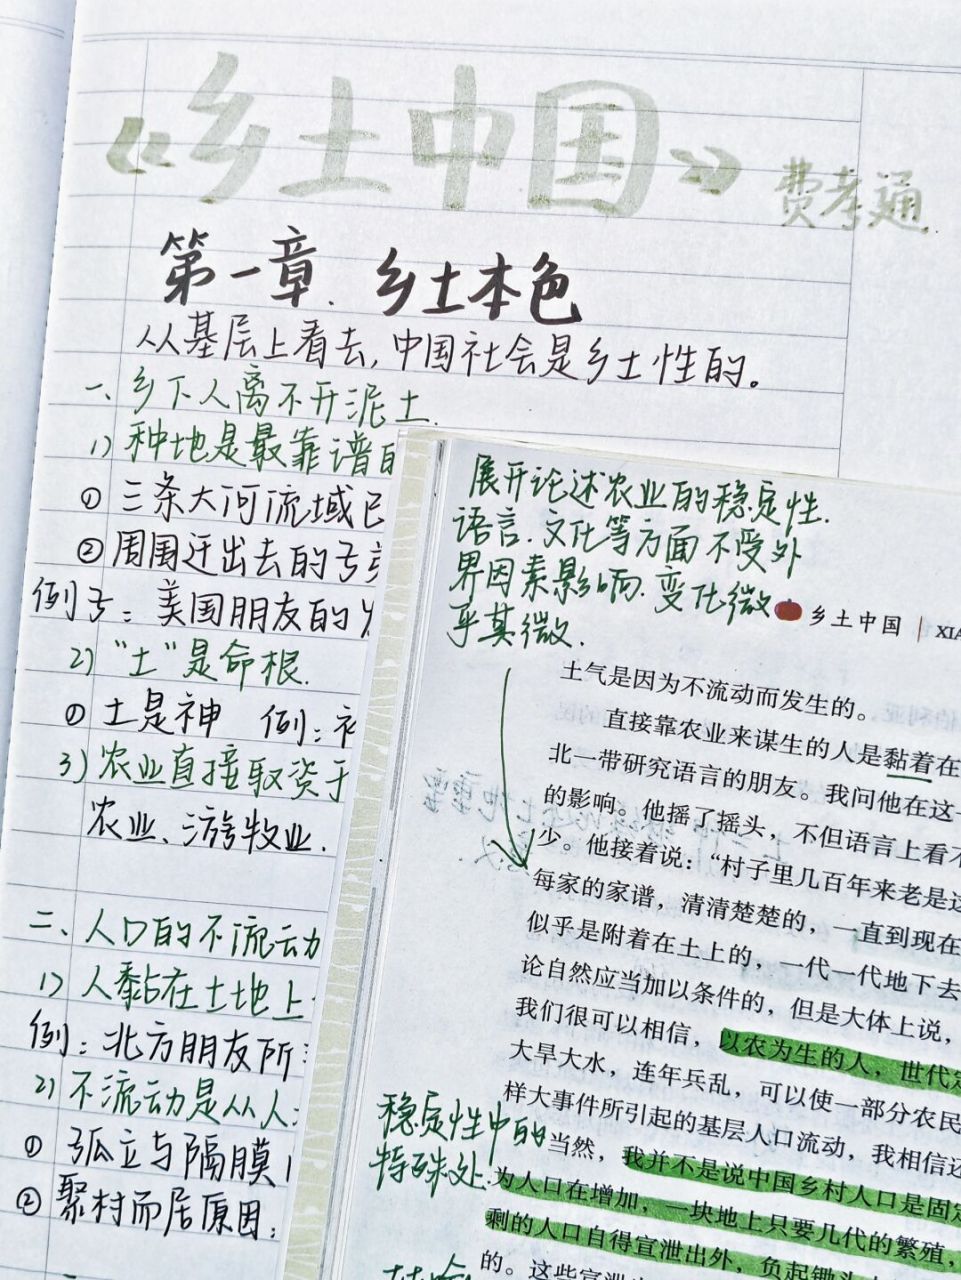 《乡土中国》 费孝通
第一章. 乡土本色
从基层上看去,中国社会是乡土性的。
一、乡下人离不开泥土.
1) 种地是最靠谱的
① 三条大河流域已
② 周围迁出去的
例子: 美国朋友的
2) "土"是命根.
① 土是神 例:
3) 农业直接取资于
农业、游牧业.
二、人口的不流动
1) 人黏在土地上
例: 北方朋友所
2) 不流动是从人
① 孤立与隔膜
② 聚村而居原因:
展开论述农业的稳定性.
语言.文化等方面不受外
界因素影响.变化微
乎其微.
乡土中国 | XIA
土气是因为不流动而发生的。
直接靠农业来谋生的人是黏着在
北一带研究语言的朋友。我问他在这一
的影响。他摇了摇头，不但语言上看不
少。他接着说：“村子里几百年来老是这
每家的家谱，清清楚楚的，一直到现在
似乎是附着在土上的，一代一代地下去
论自然应当加以条件的，但是大体上说，
我们很可以相信，以农为生的人，世代定
大旱大水，连年兵乱，可以使一部分农民
样大事件所引起的基层人口流动，我相信还
稳定性中的
特殊处.
当然，我并不是说中国乡村人口是固定
为人口在增加，一块地上只要几代的繁殖，
剩的人口自得宣泄出外，负起锄头
的。这些宣泄出